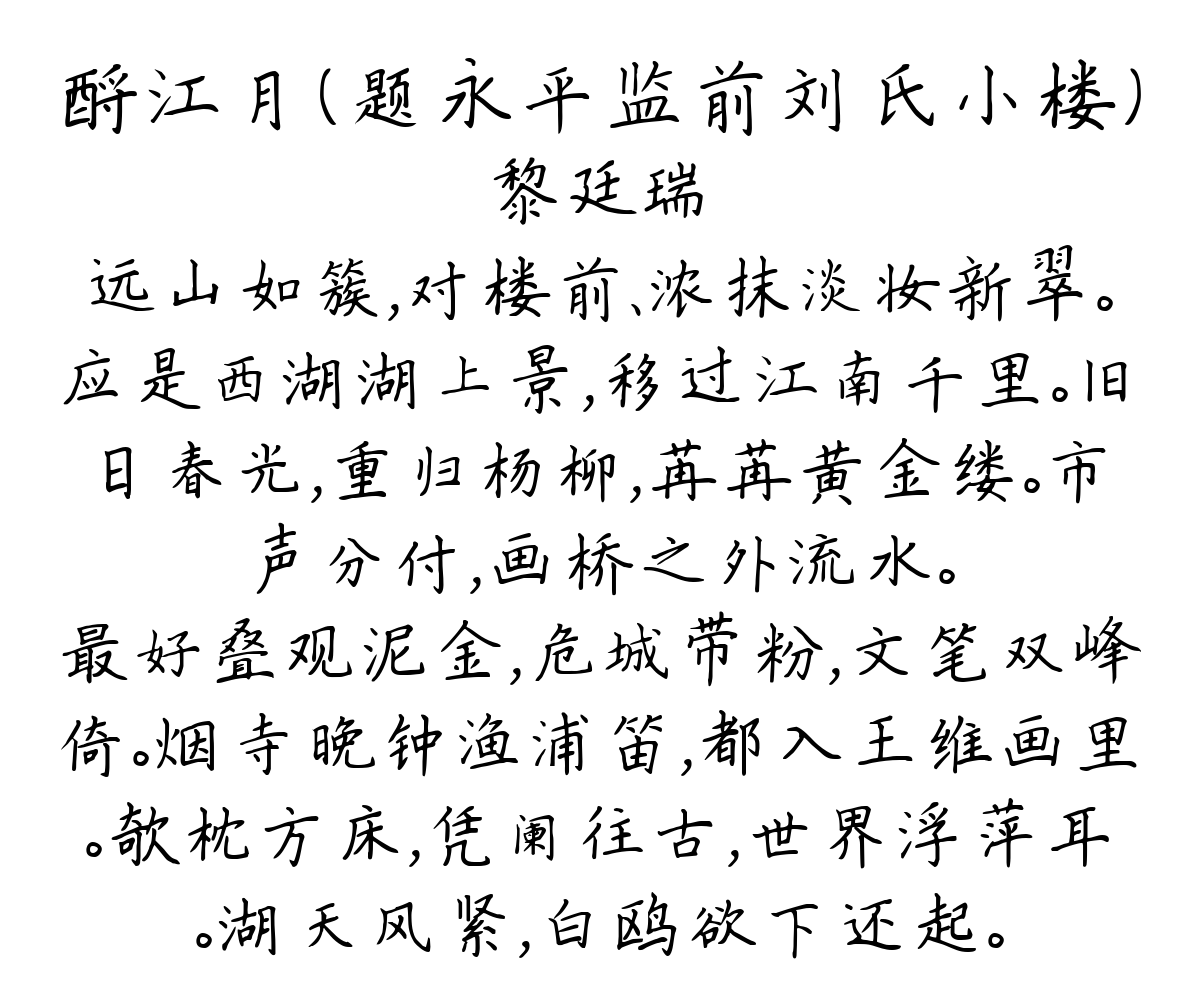 酹江月(题永平监前刘氏小楼)
黎廷瑞
远山如簇,对楼前、浓抹淡妆新翠。
应是西湖湖上景,移过江南千里。旧
日春光,重归杨柳,苒苒黄金缕。市
声分付,画桥之外流水。
最好叠观泥金,危城带粉,文笔双峰
倚。烟寺晚钟渔浦笛,都入王维画里
。欹枕方床,凭阑往古,世界浮萍耳
。湖天风紧,白鸥欲下还起。